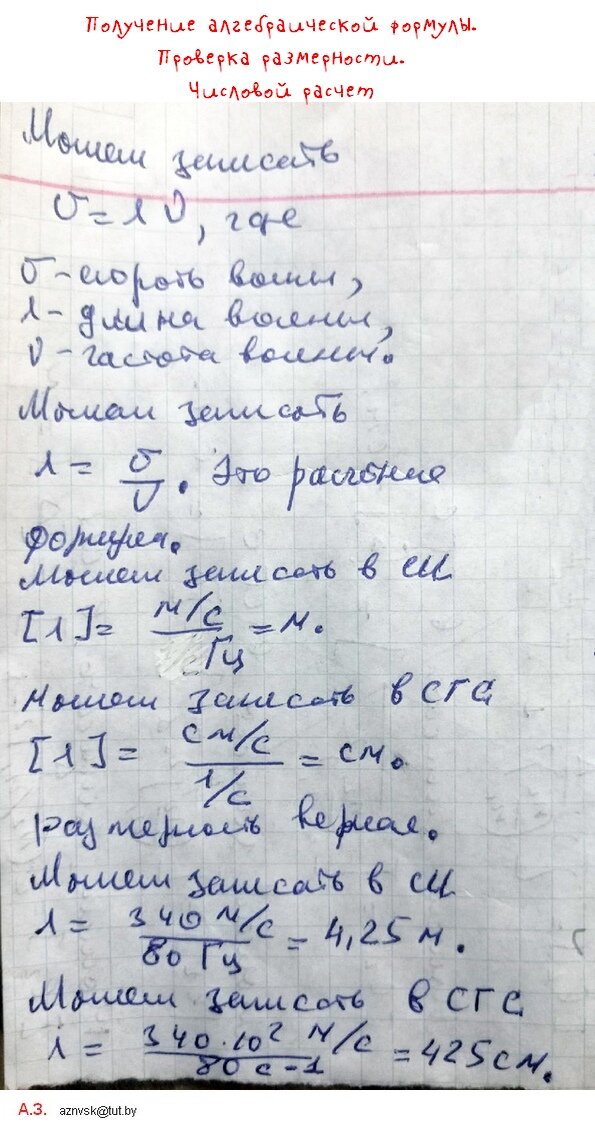 Получение алгебраической формулы.
Проверка размерности.
Числовой расчет
Можем записать
υ = λ ν, где
υ - скорость волны,
λ - длина волны,
ν - частота волны.
Можем записать
λ = υ/ν. Это расчетная
формула.
Можем записать в СИ
[λ] = м/с / Гц = м.
Можем записать в СГС
[λ] = см/с / 1/с = см.
размерность верная.
Можем записать в СИ
λ = 340 м/с / 80 Гц = 4,25 м.
Можем записать в СГС
λ = 340·10² м/с / 80 с-1 = 425 см.
А.З. aznvsk@tut.by